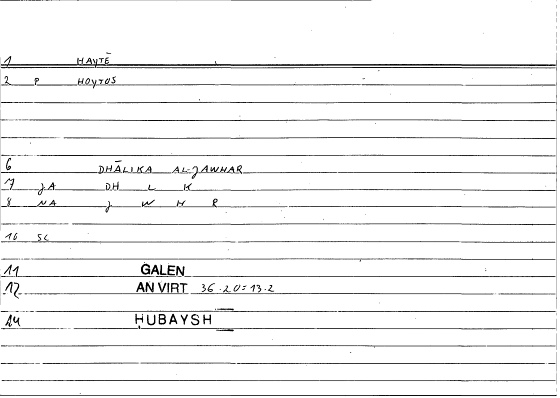 1 HAYTĒ
2 P HOYTOS
6 DHĀLIKA AL-JAWHAR
7 JA DH L K
8 NA J W H R
10 SC
11 GALEN
12 AN VIRT 36.20=13.2
14 ḤUBAYSH